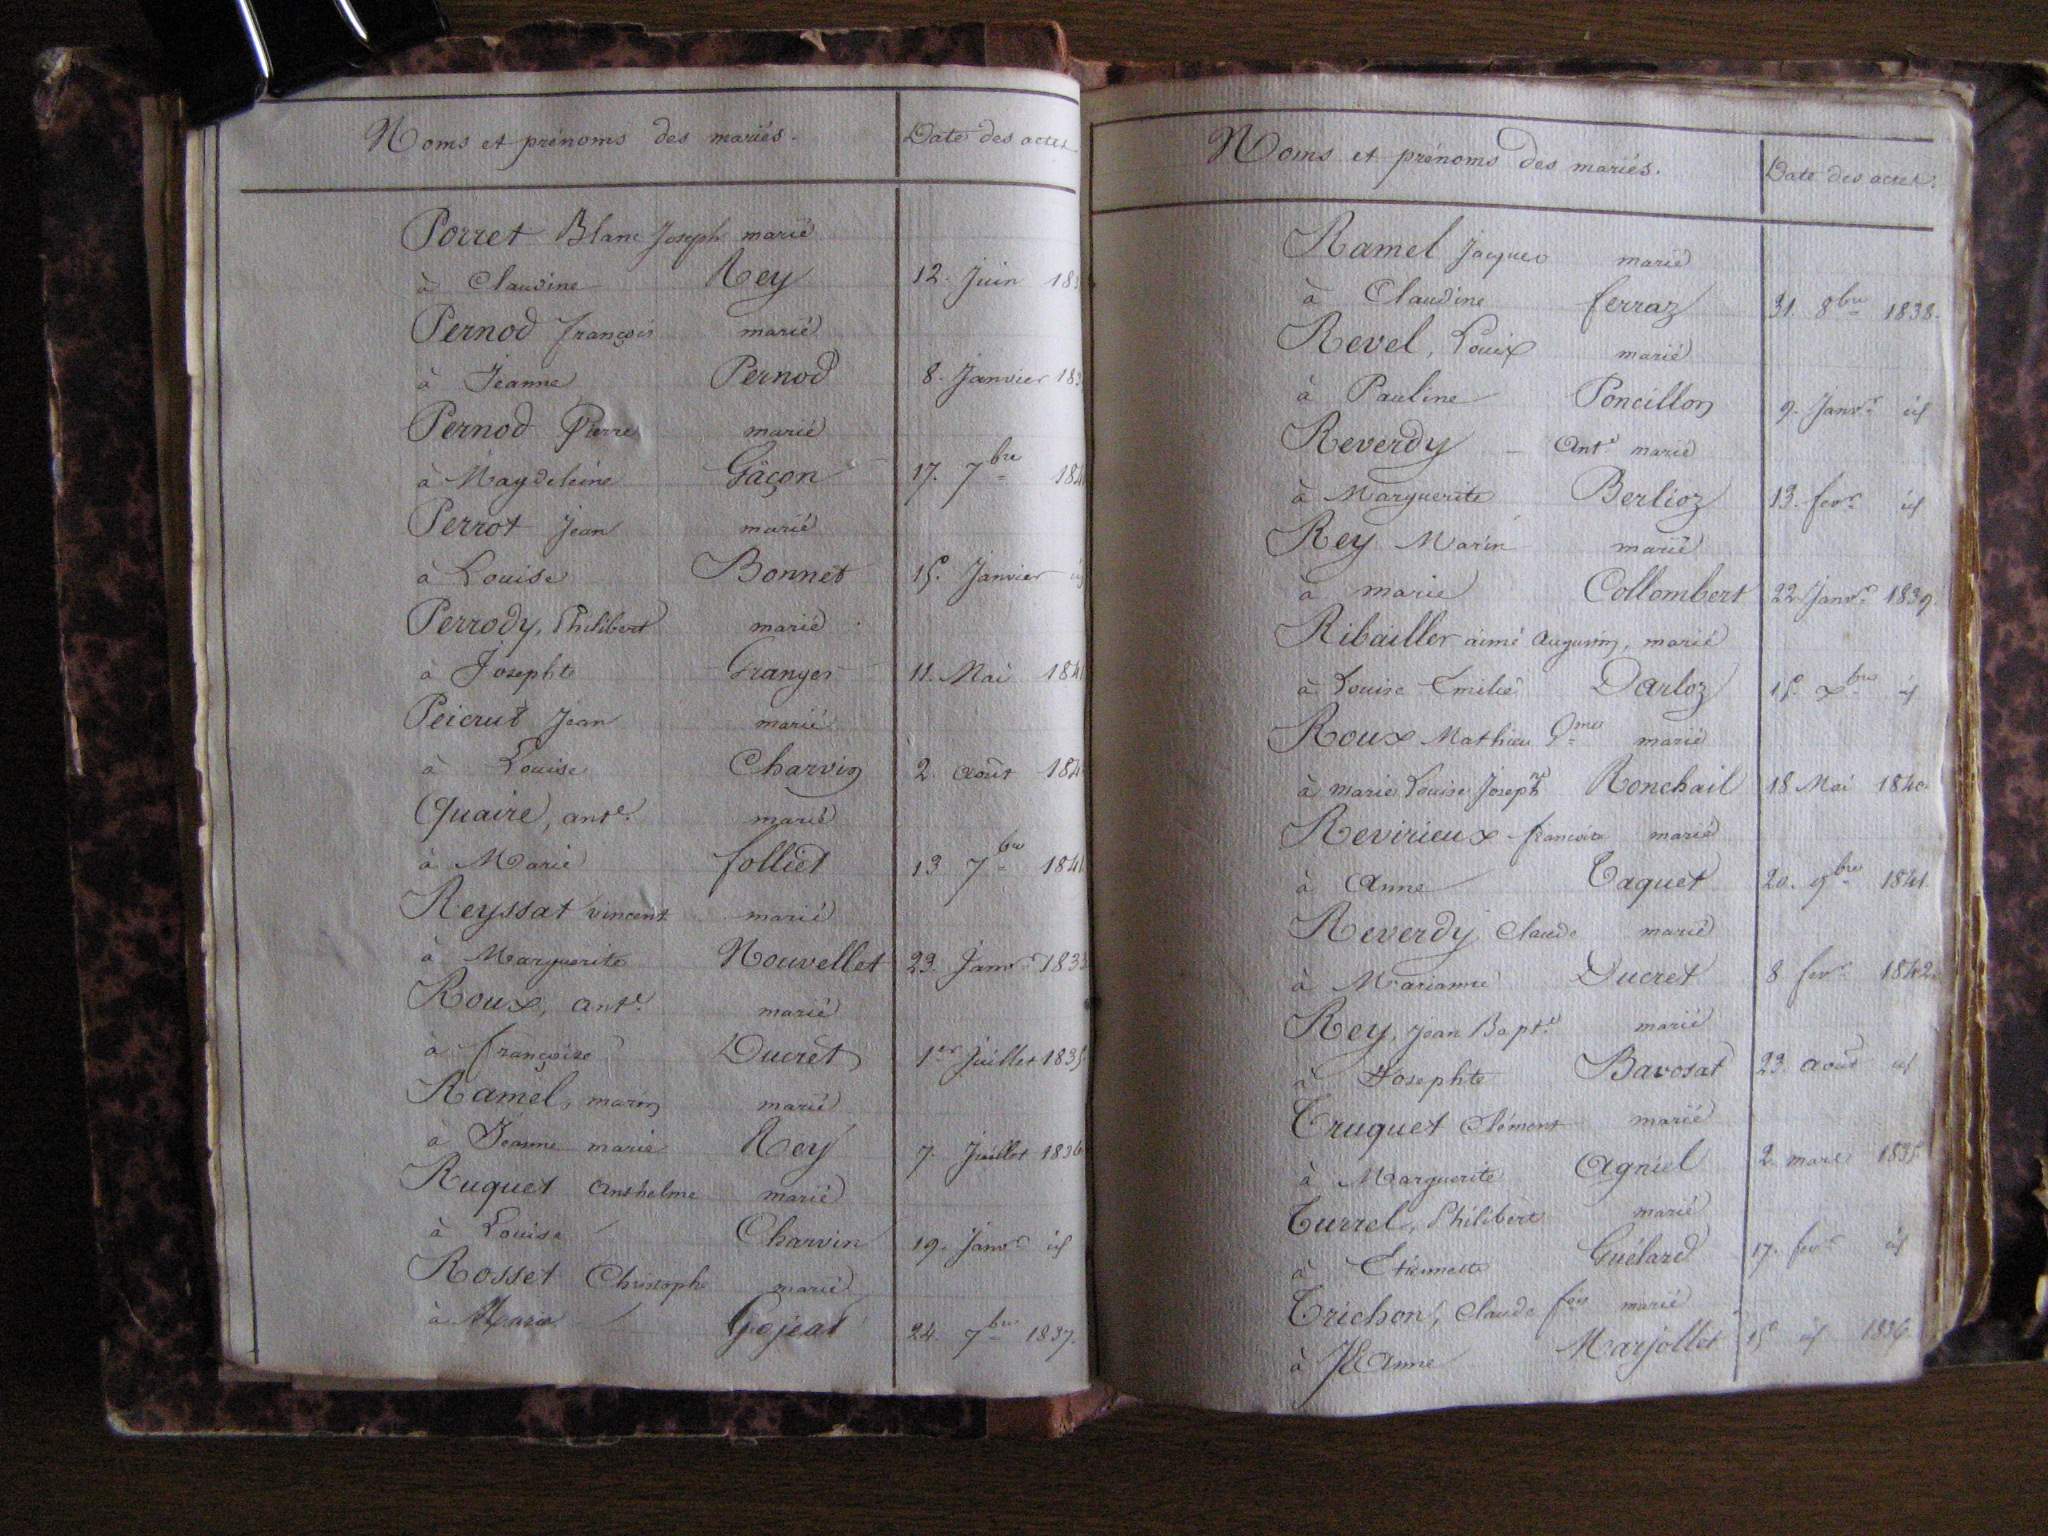 Noms et prénoms des mariés. Date des actes
Porret Blanc Joseph marié
à Claudine Rey 12. Juin
Pernod françois marié
à Jeanne Pernod 8. Janvier
Pernod Pierre marié
à Magdeleine Gâçon 17. 7bre
Perrot Jean marié
à Louise Bonnet 15. Janvier
Perrody, Philibert marié
à Josephte Granger 11. Mai 1841
Peicrut Jean marié
à Louise Charvin 2. août
Quaire, ante. marié
à Marie folliet 13 7bre 1841
Reyssat vincent marié
à Marguerite Nouvellet 23. Janvr 1833
Roux, ante. marié
à françoise Ducret 1er Juillet 1835
Ramel, marin marié
à Jeanne marie Rey 7. Juillet 1836
Ruquet Anthelme marié
à Louise Charvin 19. Janvr id
Rosset Christophe marié
à Marie Gojeat 24. 7bre 1837.
Noms et prénoms des mariés. Date des actes.
Ramel Jacques marié
à Claudine ferraz 31. 8bre 1838.
Revel, Louis marié
à Pauline Poncillon 9. Janvr id
Reverdy Ante marié
à Marguerite Berlioz 13. fevr id
Rey Marin marié
à marie Collombert 22 Janvr 1839.
Ribailler aimé Augustin, marié
à Louise Emilie Darloz 15. xbre id
Roux Mathieu Gme marié
à marie Louise Joseph Ronchail 18 Mai 1840.
Revirieux françois marié
à Anne Taquet 20. 9bre 1841
Reverdy Claude marié
à Marianne Ducret 8 fevr 1842.
Rey, Jean Bapte marié
à Josephte Bavosat 23. août id
Truquet Clément marié
à Marguerite Agniel 2 mars 1835
Turrel, Philibert marié
à Etiennette Guélard 17. fevr id
Trichon, Claude fois marié
à JeAnne Marjollet 15 id 1836